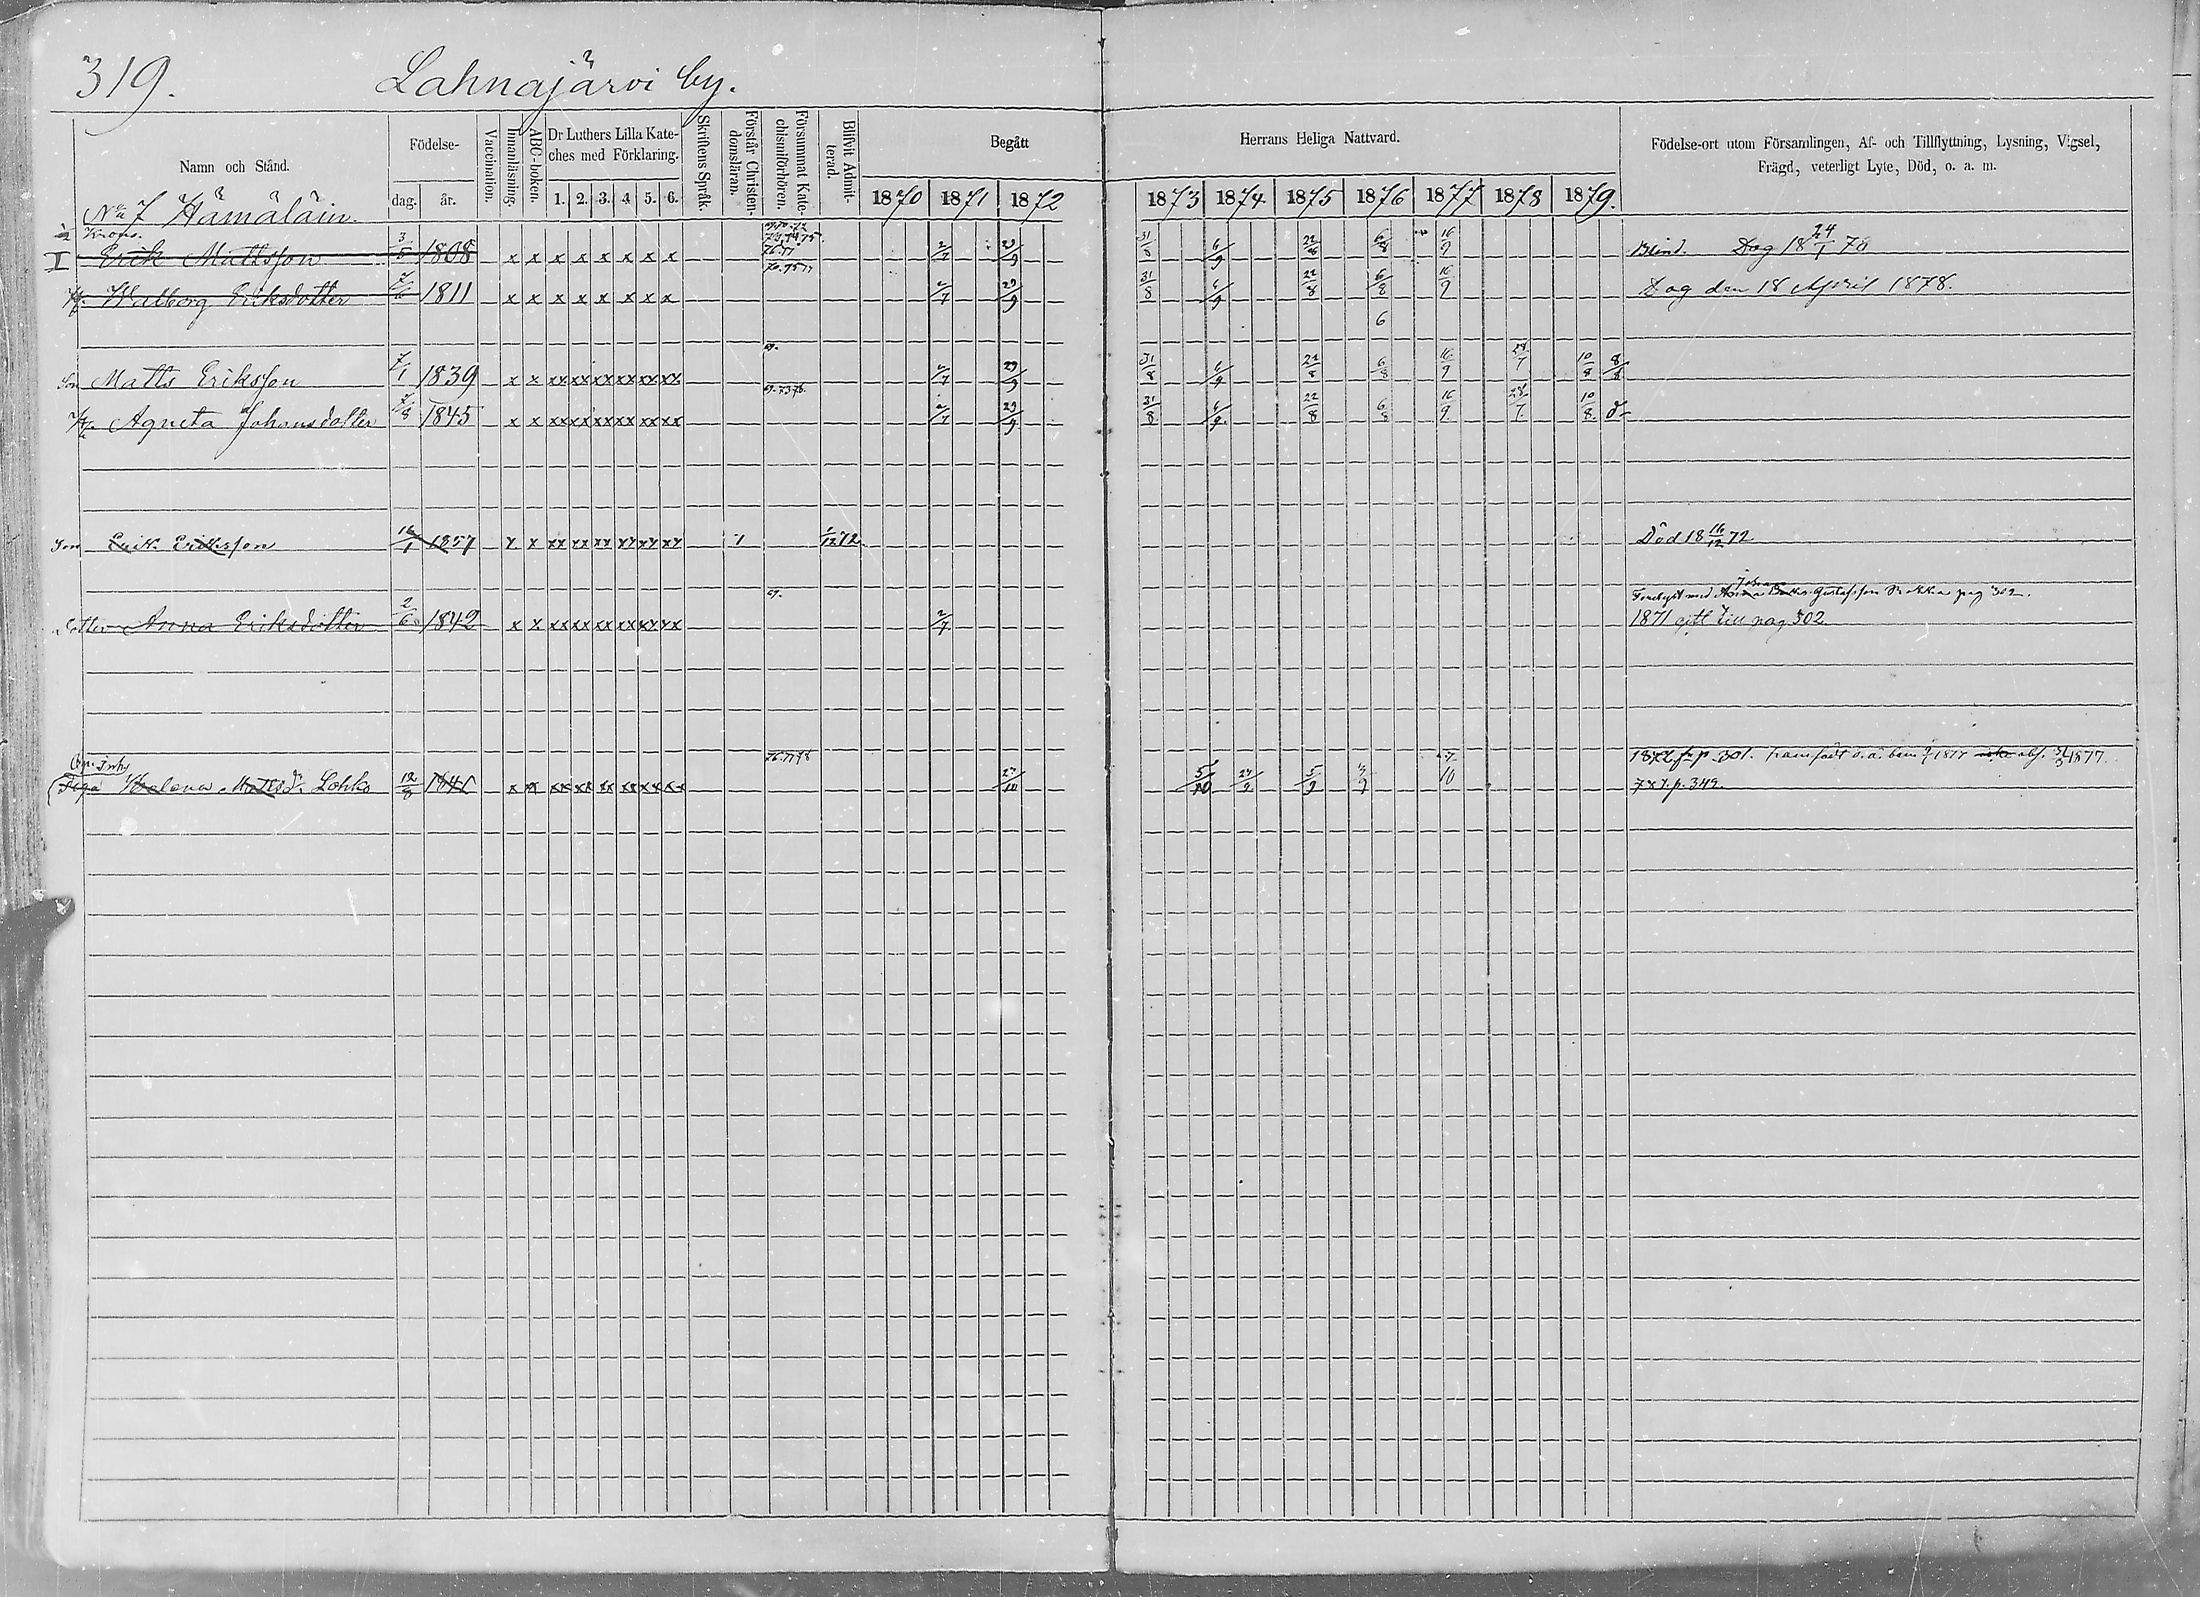 319. Lahnajärvi by.
Namn och Stånd. Födelse- Vaccination. Innanläsning. ABC-boken. Dr Luthers Lilla Kate- Skriftens Språk. Förstår Christen- Försummat Kate- Blifvit Admit- Begått Herrans Heliga Nattvard. Födelse-ort utom Församlingen, Af- och Tillflyttning, Lysning, Vigsel,
ches med Förklaring. domsläran. chismiförhören. terad. Frägd, veterligt Lyte, Död, o. a. m.
dag. år. 1. 2. 3. 4. 5. 6. 1870 1871 1872 1873 1874 1875 1876 1877 1878 1879.
No 7 Hämäläin.
Krono.
I Erik Mattsson 3/5 1808 x x x x x x x x 2/7 29/9 31/8 6/9 22/8 6/8 16/9 Blind. Dog 18 24/1 78
Walborg Eriksdotter 1811 x x x x x x x x 2/7 29/9 31/8 6/9 22/8 6/8 16/9 Dog den 18 April 1878.
6
Son Matts Eriksson 7/1 1839 x x xx xx xx xx xx xx 2/7 29/9 31/8 6/9 22/8 6/8 16/9 28/7 10/8 8/8
Agneta Johansdotter 7/8 1845 x x xx xx xx xx xx xx 2/7 29/9 31/8 6/9 22/8 6/8 16/9 28/7 10/8 d-
Son Erik Eriksson 16/1 1857 x x xx xx xx xx xx xx 1 1/12 72 Död 18 16/12 72
Johan
Gustafsson pag 302.
Anna Eriksdotter 2/6 1842 x x xx xx xx xx xx xx 2/7 1871 gift till pag 302
76.77.78 1872 fr p. 301.
Piga Helena Mattsd:r Lohko 12/8 1841 x x xx xx xx xx xx xx 27/10 5/10 27/9 5/9 7/9 27/10 p. 349.